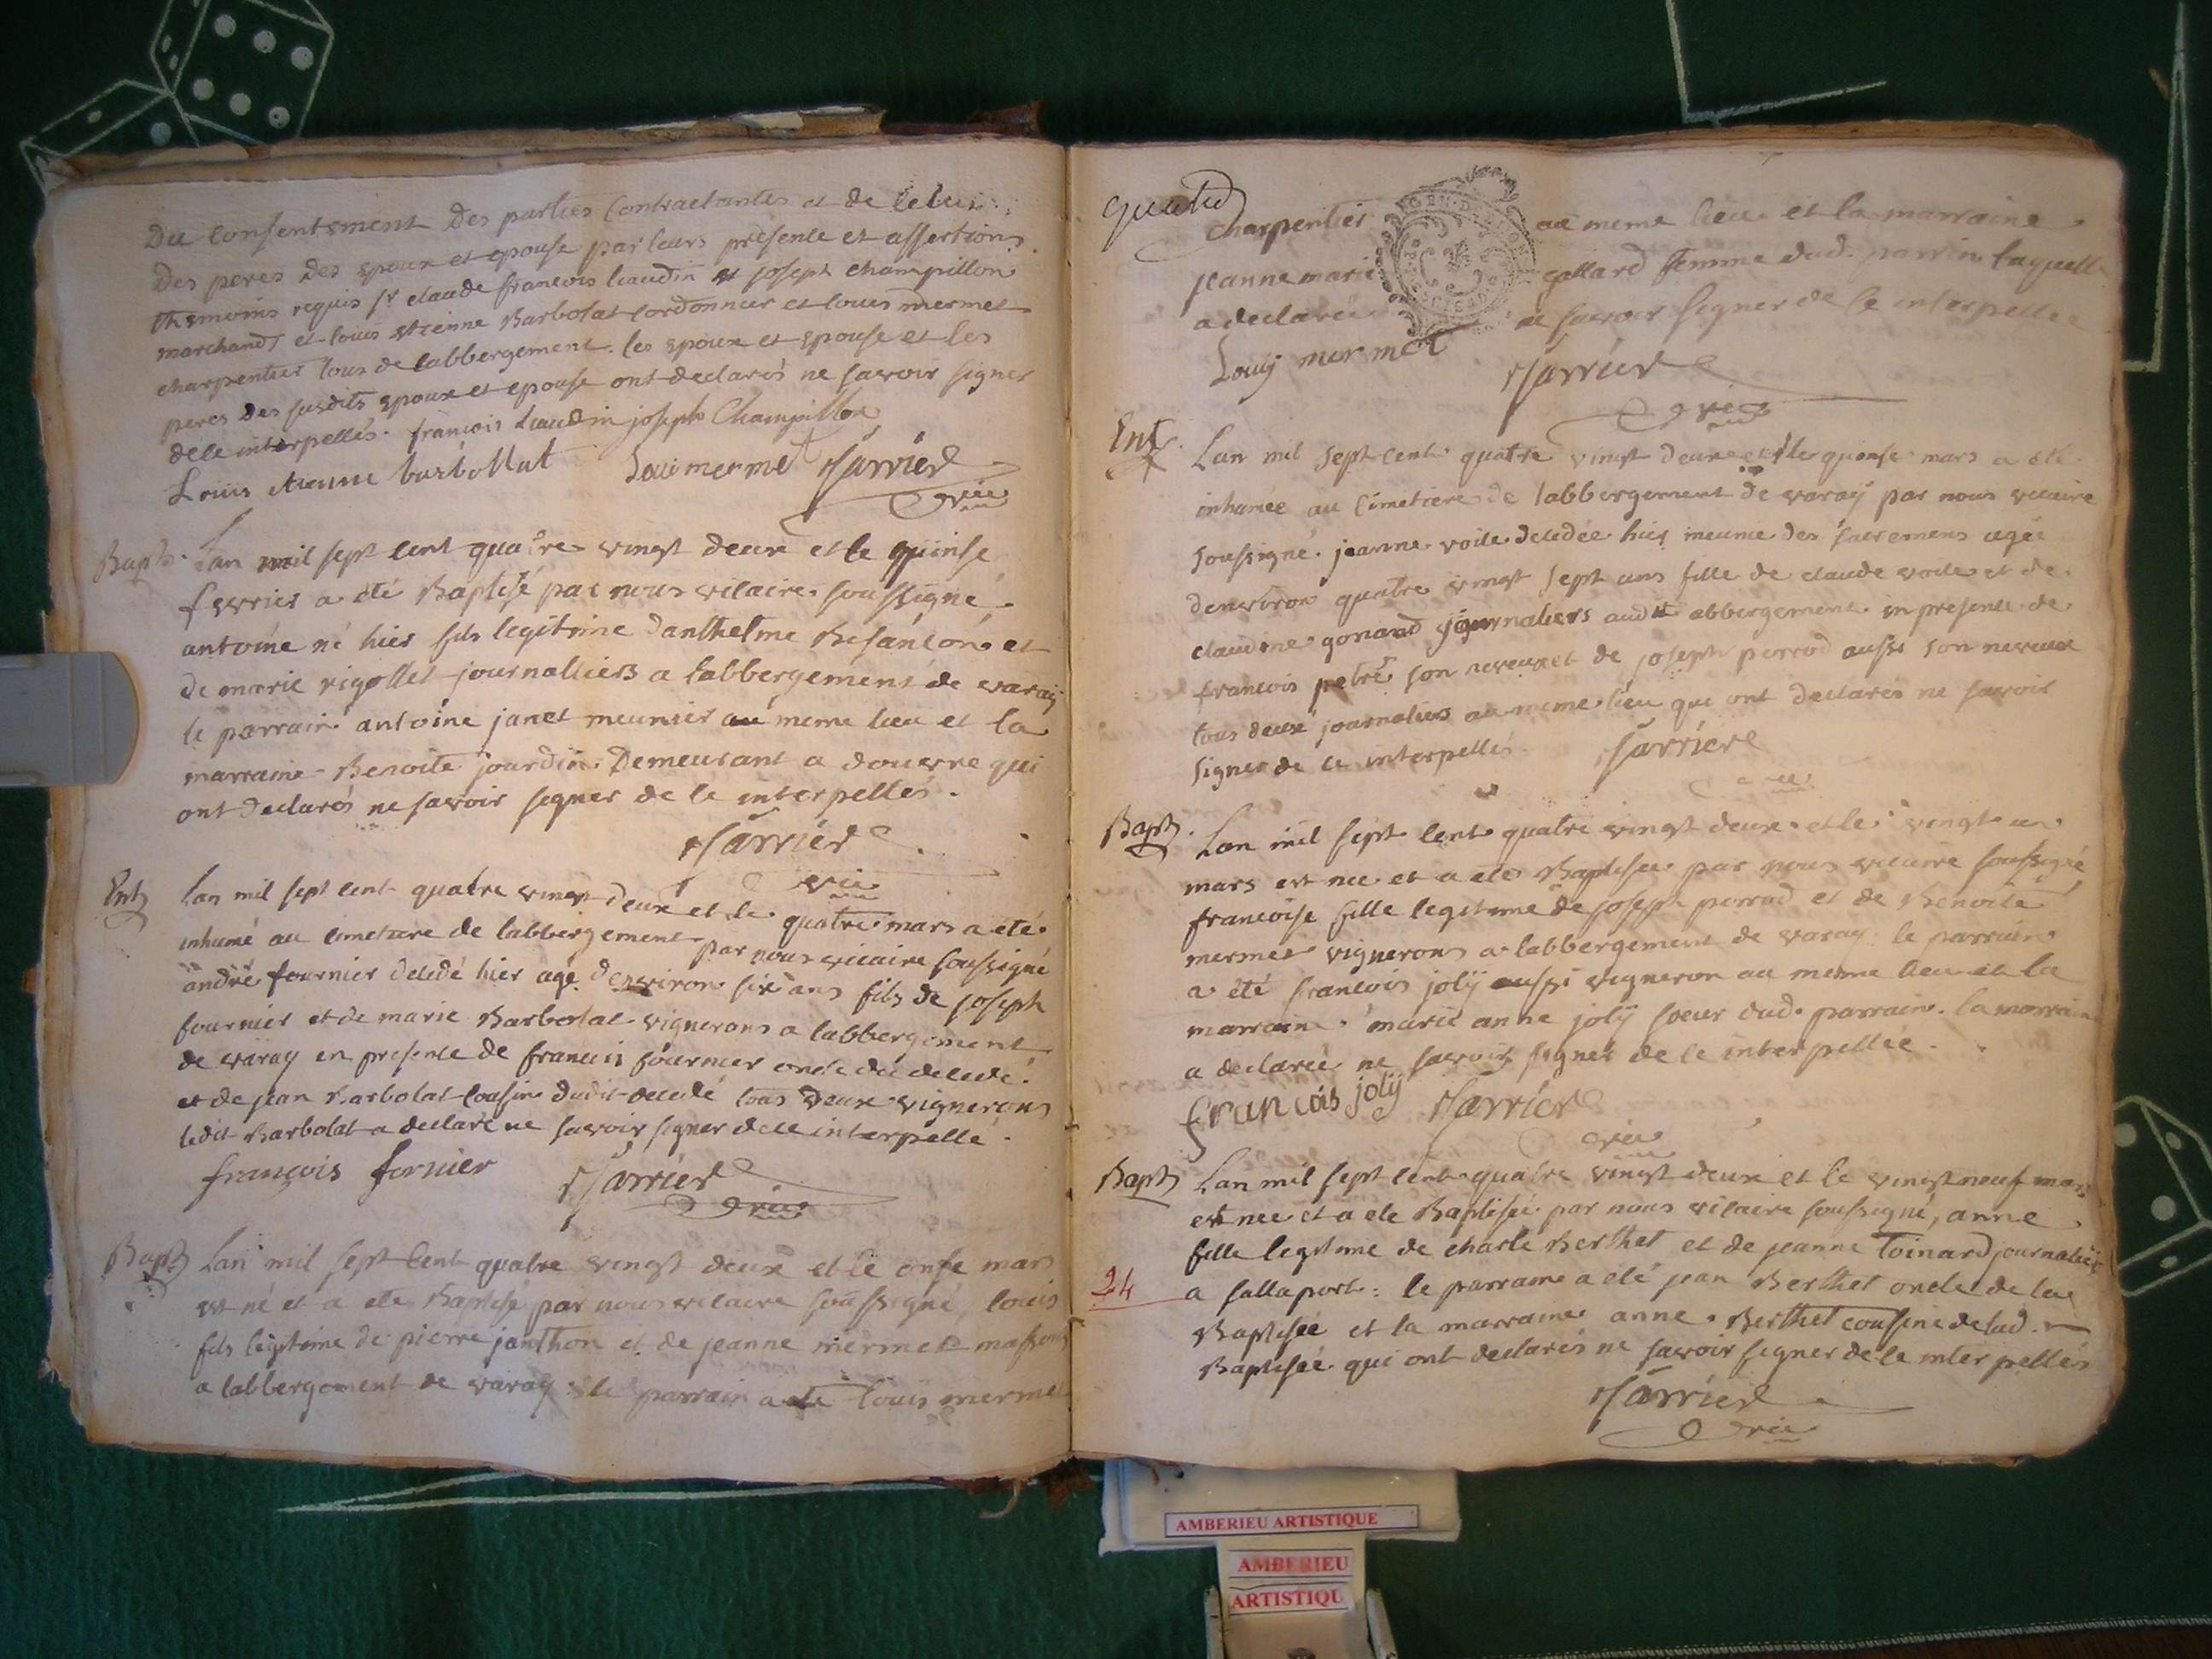 Du consentement Des parties Contractantes et de celui
Des peres Des epoux et epouse par leurs presence et assertions
themoins requis sr claude francois liaudin et joseph champillon
marchands et louis etienne Barbolat cordonnier et louis mermet
charpentier tous de labbergement. les epoux et epouse et les
peres Des susdits epoux et epouse ont declarés ne savoir signer
dece interpellés. francois Liaudin joseph Champillon
Louis etienne barbollat Loui mermet Marrier
vic
Bapt. Lan mil sept cent quatre vingt deux et le quinse
fevrier a été Baptisé par nous vicaire soussigné
antoine né hier fils legitime Danthelme Besancon et
de marie rigollet journalliers a labbergement de varay
le parrain antoine janet meunier au meme lieu et la
marraine Benoite jourdin Demeurant a douvre qui
ont Declarés ne savoir signer de ce interpellés.
Marrier
vic
Ent Lan mil sept cent quatre vingt deux et le quatre mars a été
inhumé au cimetiere de labbergement par nous vicaire soussigné
andré fournier decedé hier agé Denviron six ans fils de joseph
fournier et de marie Barbolat vignerons a labbergement
de varay en presence de francois fournier oncle du decedé
et de jean Barbolat cousin dudit decedé tous Deux vignerons
ledit Barbolat a declaré ne savoir signer dece interpellé.
françois fornier Marrier
vic
Bapt Lan mil sept cent quatre vingt deux et le onse mars
est né et a ete Baptisé par nous vicaire soussigné, louis
fils legitime de pierre janthon et de jeanne mermet massons
a labbergement de varay le parrain a été louis mermet
charpentier au meme lieu et la marraine
jeanne marie gallard femme dud. parrin laquelle
a declarée ne savoir signer de ce interpellée
Louij mermet Marrier
vic
Ent. Lan mil sept cent quatre vingt deux et le quinse mars a été
inhumee au cimetiere de labbergement de varaÿ par nous vicaire
soussigné. jeanne voile decedée hier meunie des sacremens agée
denviron quatre vingt sept ans fille de claude voile et de
claudine gonard journaliers audit abbergement in presence de
francois petre son neveux et de joseph perrod aussi son neveux
tous deux journaliers au meme lieu qui ont declarés ne savoir
signer de ce interpellés Marrier
vic
Bapt. Lan mil sept cent quatre vingt deux et le vingt un
mars est nee et a ete Baptisée par nous vicaire soussigné
francoise fille legitime de joseph perrod et de Benoite
mermet vignerons a labbergement de varay le parrain
a été francois jolÿ aussi vigneron au meme lieu et la
marraine marie anne jolÿ soeur dud. parrain. la marraine
a declarée ne savoir signer de ce interpellée.
francois jolÿ Marrier
vic
Bapt Lan mil sept cent quatre vingt deux et le vingt neuf mars
est nee et a ete Baptisée par nous vicaire soussigné, anne
fille legitime de charle Berthet et de jeanne Toinard journaliers
24 a sallaport: le parraine a été jean Berthet oncle de la
Baptisée et la marraine anne Berthet cousine de lad.
Baptisée qui ont declarés ne savoir signer de ce interpellés
Marrier
vic
AMBERIEU ARTISTIQUE
AMBERIEU
ARTISTIQU